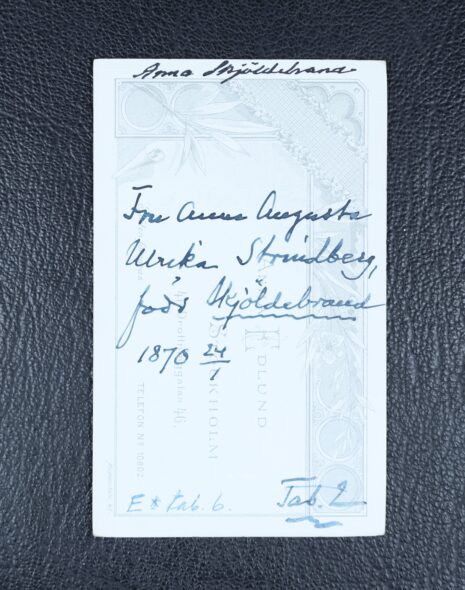 Anna Skjöldebrand
Fru Anna Augusta
Ulrika Strindberg,
född Skjöldebrand
1870 24/1
E * tab. 6.
Tab. 2
EDLUND
STOCKHOLM
Drottninggatan 46.
TELEFON No 10802